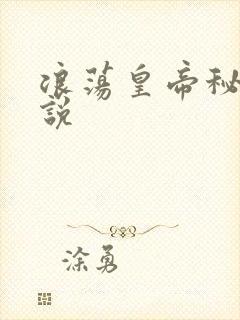 浪荡皇帝秘
說
涂勇